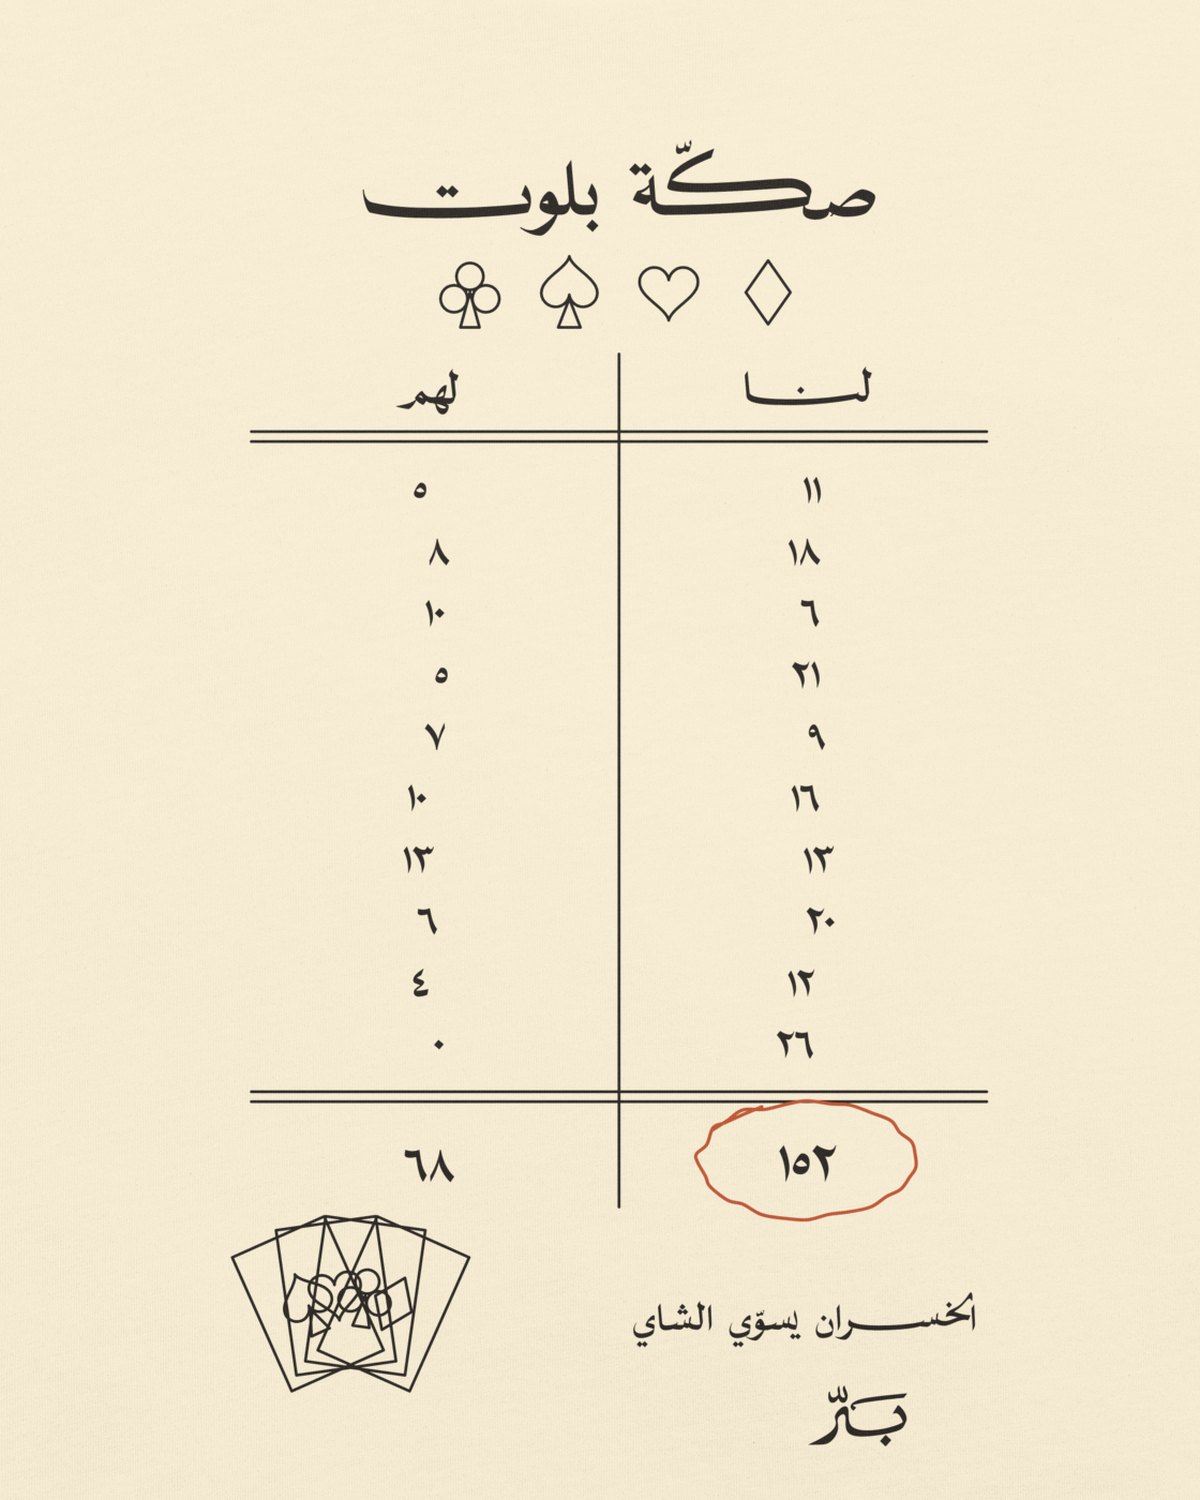 صكّة بلوت
لنا لهم
١١ ٥
١٨ ٨
٦ ١٠
٢١ ٥
٩ ٧
١٦ ١٠
١٣ ١٣
٢٠ ٦
١٢ ٤
٢٦ ٠
١٥٢ ٦٨
الخسران يسوّي الشاي
بَرّ